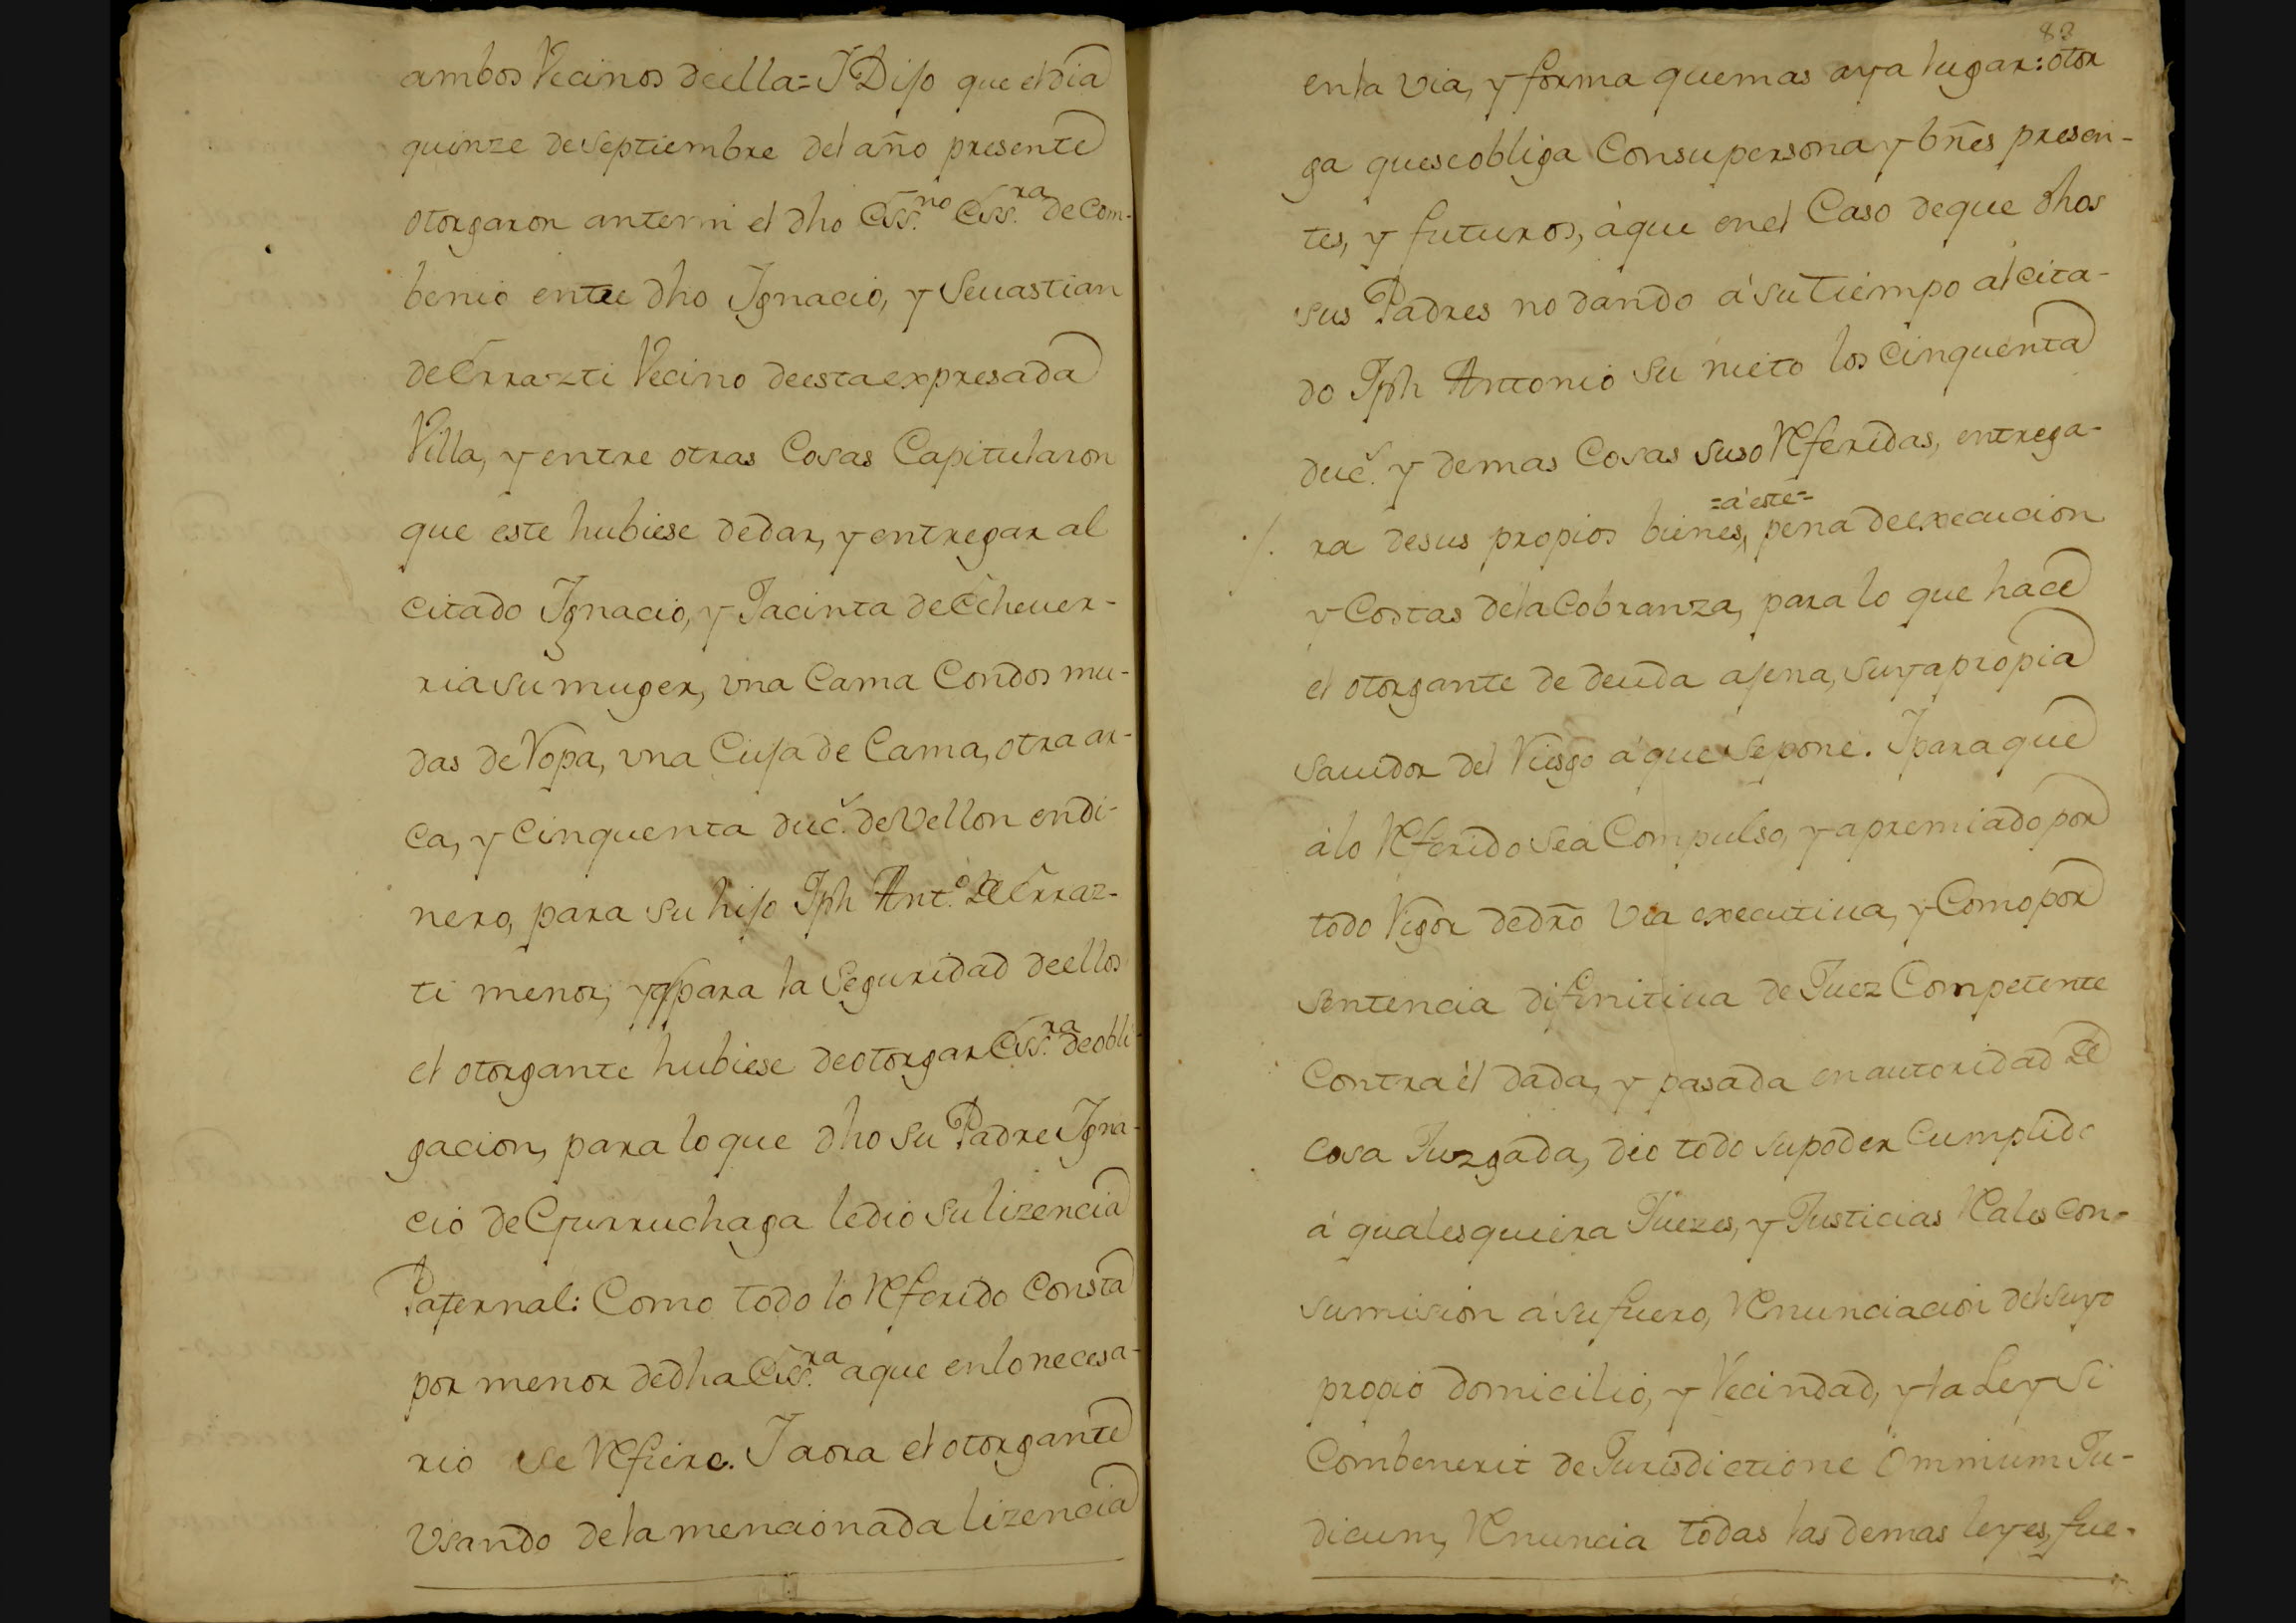 ambos Vecinos deella = I Dijo que el dia
quinze de septiembre del año presente
otorgaron antemi el dho Ess.no Ess.ra de Com-
benio entre dho Ignacio, y Seuastian
de Errazti Vecino deesta expresada
Villa, y entre otras Cosas Capitularon
que este hubiese dedar, y entregar al
citado Ignacio, y Jacinta de Echeuer-
ria su muger, vna Cama Con dos mu-
das de Ropa, vna Cuja de Cama, otra ar-
ca, y Cinquenta duc.s de Vellon en di-
nero, para su hijo Jph Ant.o de Erraz-
ti menor, y para la seguridad deellos
el otorgante hubiese deotorgar Ess.ra de obli-
gacion, para lo que dho su Padre Igna-
cio de Gurruchaga ledio su lizencia
Paternal: Como todo lo Referido Consta
por menor dedha Ess.ra a que en lo necesa-
rio se Refiere. I aora el otorgante
Vsando dela mencionada lizencia
82
en la via, y forma quemas aya lugar: otor
ga quese obliga Con su persona y bñes presen-
tes, y futuros, á que en el Caso de que dhos
sus Padres no dando á su Tiempo al cita-
do Jph Antonio su nieto los Cinquenta
duc.s y demas Cosas suso Referidas, entrega-
=á este=
ra desus propios bienes, pena deexecucion
y Costas dela Cobranza, para lo que hace
el otorgante de deuda ajena, suya propia
sauidor del Riesgo á que se pone. I para que
á lo Referido sea Compulso, y apremiado por
todo Rigor dedrño Via executiua, y Como por
sentencia difinitiua de Juez Competente
Contra él dada, y pasada en autoridad de
cosa Juzgada, dio todo su poder Cumplido
á qualesquiera Juezes, y Justicias Reales con-
sumision á su fuero, Renunciacion del suyo
propio domicilio, y Vecindad, y la Ley Si
Combenerit de Jurisdictione Omnium Ju-
dicum, Renuncia todas las demas leyes, fue-